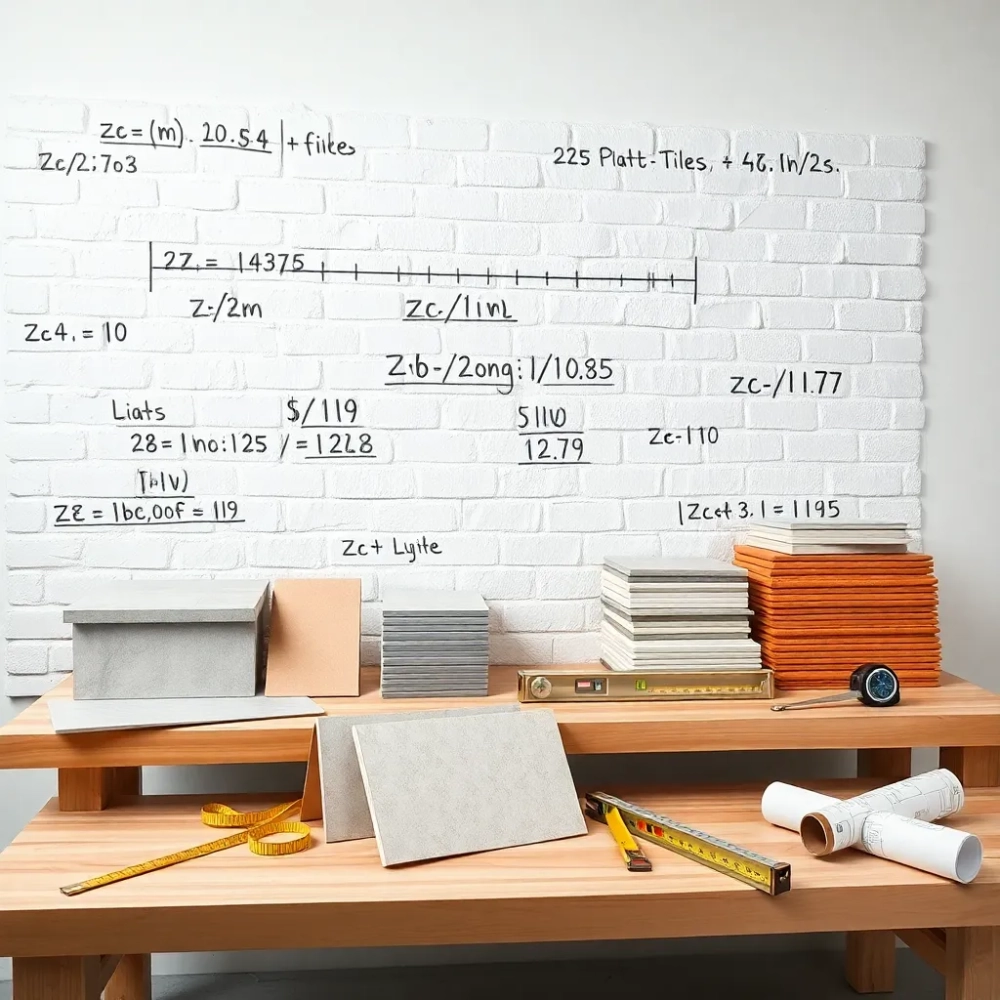 zc = (m). 20.5.4 + fiikes
Zc/2;703
225 Platt-Tiles, + 48. In/2s.
2Z. = 14375
Z-/2m
Zc./1inl
Zc4. = 10
Z.b-/2ong: 1/10.85
ZC-/11.77
Liats
$/119
28 = 1no:125 / = 1228
S110
12.79
Zc-110
ZE = 1bc,oof = 119
|Zc+ 3.1 = 1195
Zc+ Lyite